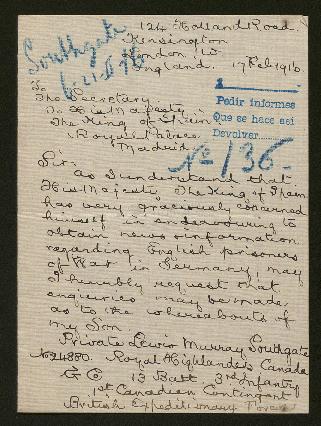 124 Holland Road.
Kensington
London W.
England. 17 Feb 1916.
Southgate
To
The Secretary
To His Majesty
The King of Spain
Royal Palace
Madrid
Pedir informes
Que se hace así
Devolver
Nº 136
Sir.
As I understand that
His Majesty The King of Spain
has very graciously concerned
himself in endeavouring to
obtain news & information
regarding English prisoners
of War in Germany, may
I humbly request that
enquiries may be made
as to the whereabouts of
my Son
Private Lewis Murray Southgate
No 24880. Royal Highlanders Canada
G Co 13 Batt 3rd Infantry
1st Canadian Contingent
British Expeditionary Force